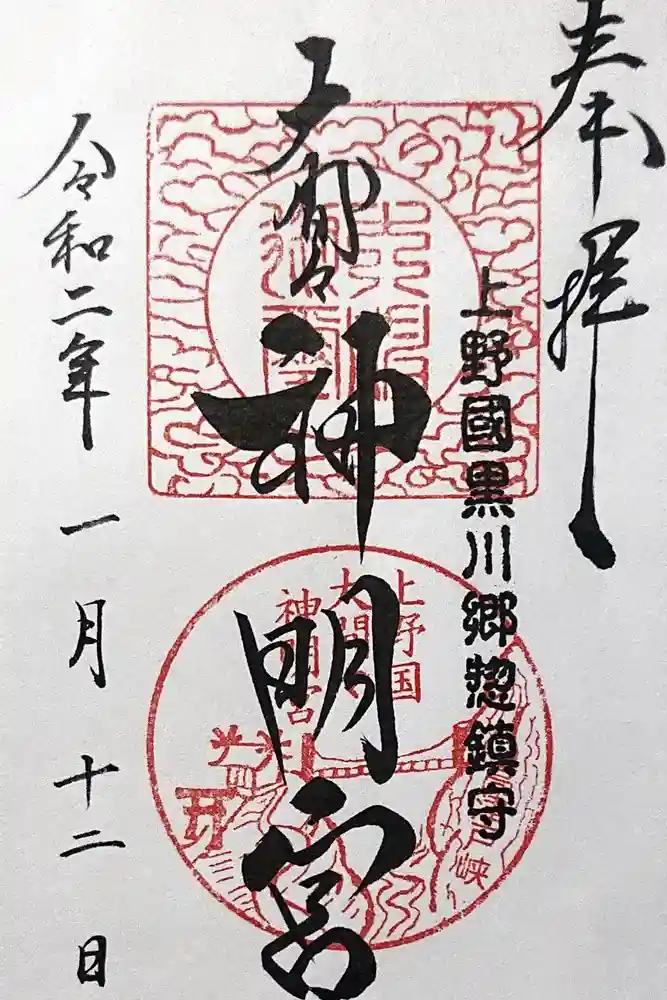 奉拝
上野國黒川郷惣鎮守
大間々神明宮
令和二年一月十二日
上野国
大間々
神明宮
峡